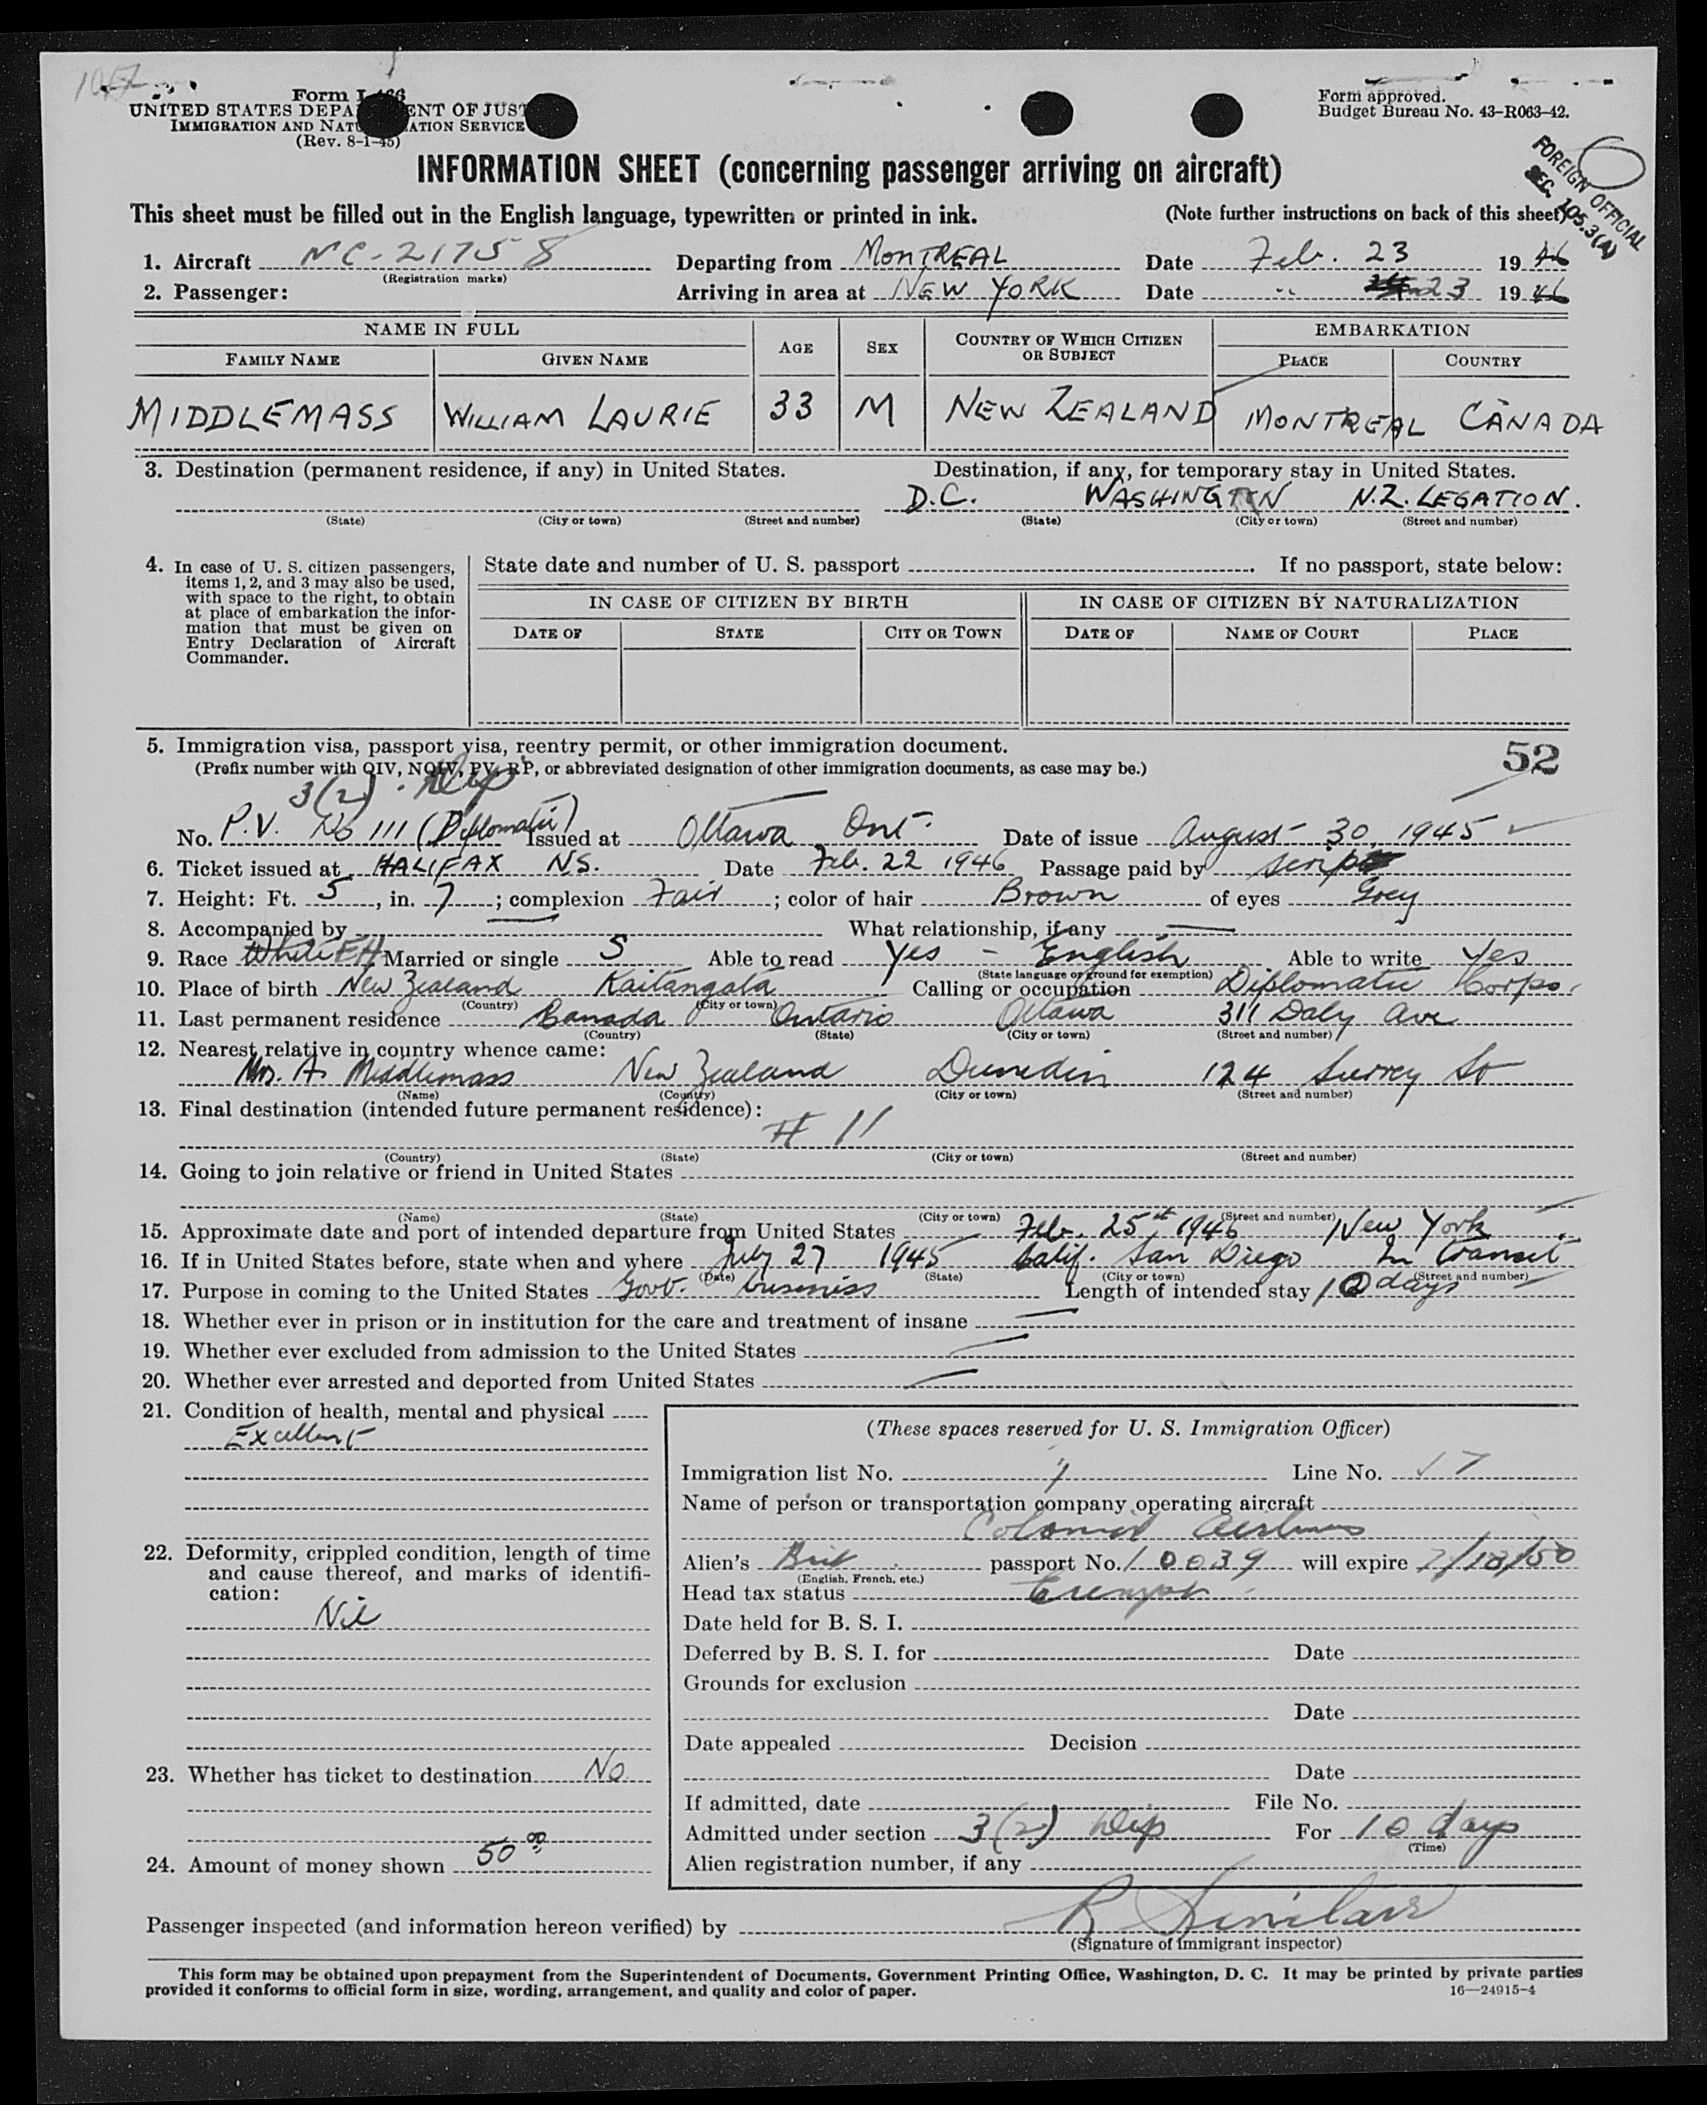 Form I-466
UNITED STATES DEPARTMENT OF JUSTICE
IMMIGRATION AND NATURALIZATION SERVICE
(Rev. 8-1-45)
Form approved.
Budget Bureau No. 43-R063-42.
FOREIGN OFFICIAL
SEC. 105.3(A)
INFORMATION SHEET (concerning passenger arriving on aircraft)
This sheet must be filled out in the English language, typewritten or printed in ink. (Note further instructions on back of this sheet)
1. Aircraft NC-21758 Departing from MONTREAL Date Feb. 23 1946
(Registration marks)
2. Passenger: Arriving in area at NEW YORK Date " 23 1946
NAME IN FULL AGE SEX COUNTRY OF WHICH CITIZEN OR SUBJECT EMBARKATION
FAMILY NAME GIVEN NAME PLACE COUNTRY
MIDDLEMASS WILLIAM LAURIE 33 M NEW ZEALAND MONTREAL CANADA
3. Destination (permanent residence, if any) in United States. Destination, if any, for temporary stay in United States.
D.C. WASHINGTON N.Z. LEGATION.
(State) (City or town) (Street and number) (State) (City or town) (Street and number)
4. In case of U. S. citizen passengers, items 1, 2, and 3 may also be used, with space to the right, to obtain at place of embarkation the information that must be given on Entry Declaration of Aircraft Commander.
State date and number of U. S. passport . If no passport, state below:
IN CASE OF CITIZEN BY BIRTH IN CASE OF CITIZEN BY NATURALIZATION
DATE OF STATE CITY OR TOWN DATE OF NAME OF COURT PLACE
5. Immigration visa, passport visa, reentry permit, or other immigration document. 52
(Prefix number with QIV, NQIV, PV, RP, or abbreviated designation of other immigration documents, as case may be.)
3(2) Dip
No. P.V. No 111 (Diplomatic) Issued at Ottawa Ont. Date of issue August 30 1945
6. Ticket issued at HALIFAX NS. Date Feb. 22 1946 Passage paid by
7. Height: Ft. 5, in. 7; complexion Fair; color of hair Brown of eyes Grey
8. Accompanied by What relationship, if any
9. Race White Married or single S Able to read Yes - English Able to write Yes
(State language or ground for exemption)
10. Place of birth New Zealand Kaitangata Calling or occupation Diplomatic Corps.
(Country) (City or town)
11. Last permanent residence Canada Ontario Ottawa 311 Daly Ave
(Country) (State) (City or town) (Street and number)
12. Nearest relative in country whence came:
Mrs. A. Middlemass New Zealand Dunedin 124 Surrey St
(Name) (Country) (City or town) (Street and number)
13. Final destination (intended future permanent residence):
# 11
(Country) (State) (City or town) (Street and number)
14. Going to join relative or friend in United States
(Name) (State) (City or town) (Street and number)
15. Approximate date and port of intended departure from United States Feb. 25th 1946 New York
16. If in United States before, state when and where July 27 1945 Calif. San Diego In transit
(Date) (State) (City or town) (Street and number)
17. Purpose in coming to the United States Govt. business Length of intended stay 10 days
18. Whether ever in prison or in institution for the care and treatment of insane
19. Whether ever excluded from admission to the United States
20. Whether ever arrested and deported from United States
21. Condition of health, mental and physical
Excellent
22. Deformity, crippled condition, length of time and cause thereof, and marks of identification:
Nil
23. Whether has ticket to destination No
24. Amount of money shown 50 00
(These spaces reserved for U. S. Immigration Officer)
Immigration list No. 1 Line No. 17
Name of person or transportation company operating aircraft
Colonial Airlines
Alien's Brit passport No. 10039 will expire 7/13/50
(English, French, etc.)
Head tax status Exempt
Date held for B. S. I.
Deferred by B. S. I. for Date
Grounds for exclusion
Date
Date appealed Decision
Date
If admitted, date File No.
Admitted under section 3(2) Dip For 10 days
(Time)
Alien registration number, if any
Passenger inspected (and information hereon verified) by R Sinclair
(Signature of immigrant inspector)
This form may be obtained upon prepayment from the Superintendent of Documents, Government Printing Office, Washington, D. C. It may be printed by private parties
provided it conforms to official form in size, wording, arrangement, and quality and color of paper. 16—24915-4